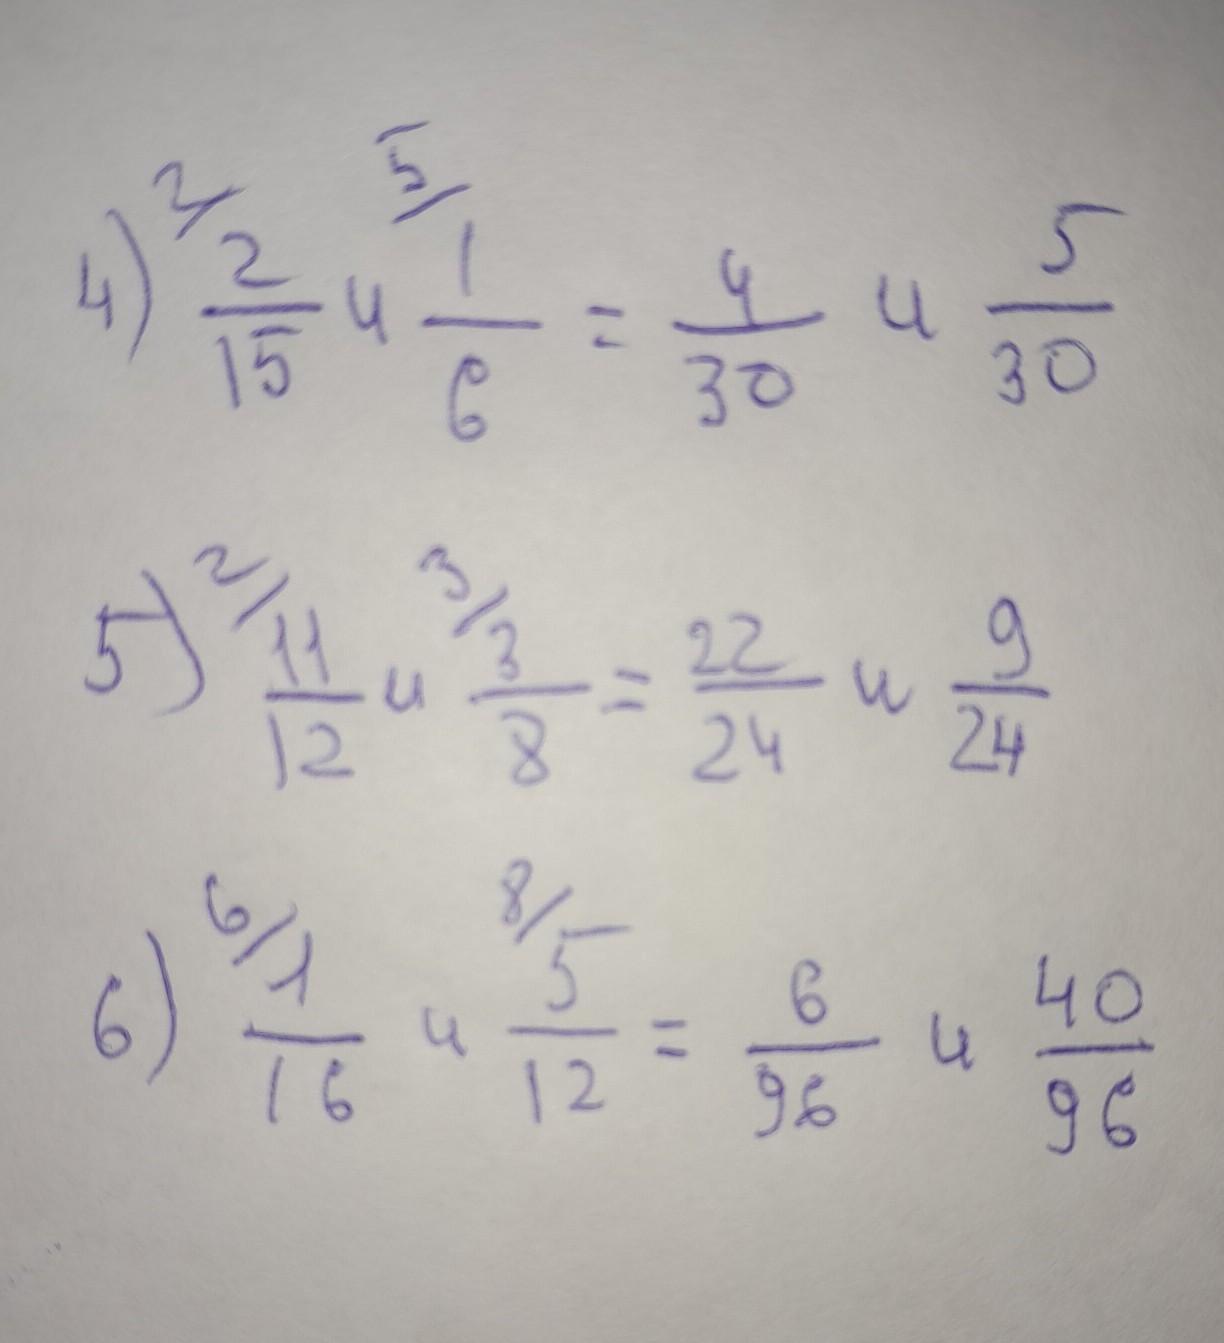 4) 2/ 2/15 и 5/ 1/6 = 4/30 и 5/30
5) 2/ 11/12 и 3/ 3/8 = 22/24 и 9/24
6) 6/ 1/16 и 8/ 5/12 = 6/96 и 40/96